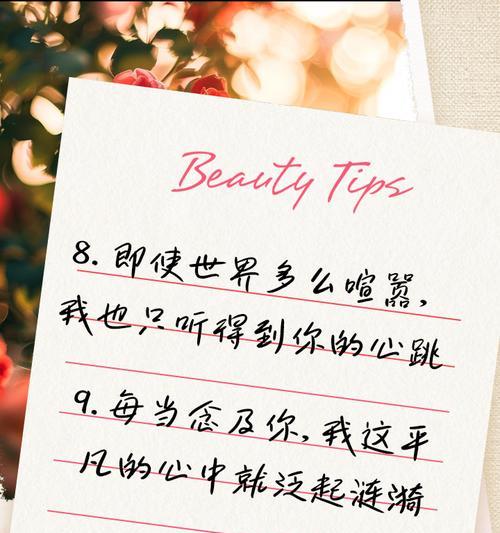 Beauty Tips
8. 即使世界多么喧嚣,
我也只听得到你的心跳
9. 每当念及你, 我这平
凡的心中就泛起涟漪